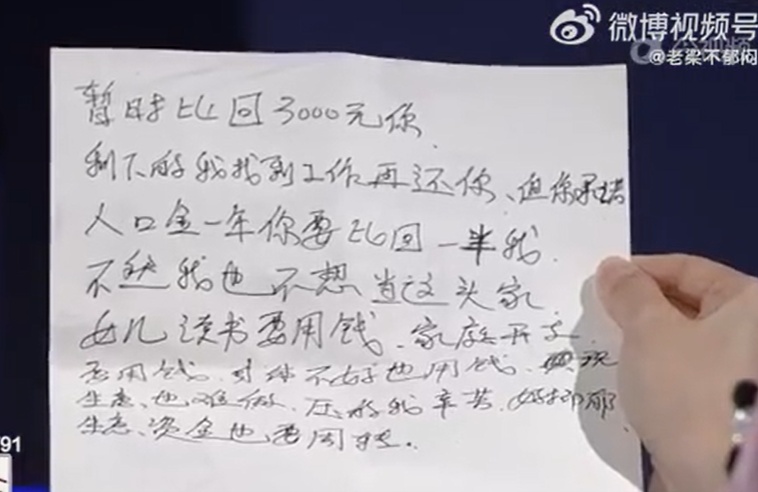 微博视频号
@老梁不郁闷
暂时比回3000元你
剩下的我找到工作再还你、但你承诺
人口金一年你要比回一半我.
不然我也不想当这头家
女儿读书要用钱.家庭开支
要用钱.身体不好也用钱.现
生意、也难做.压的我辛苦.
生意、资金也要周转.
91